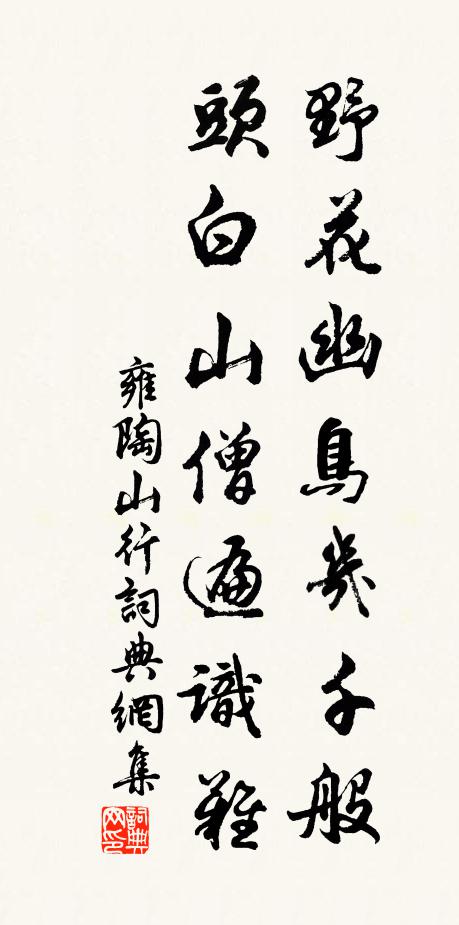 野花幽鳥幾千般
頭白山僧遍識難
雍陶山行詞典網集
詞典
网印